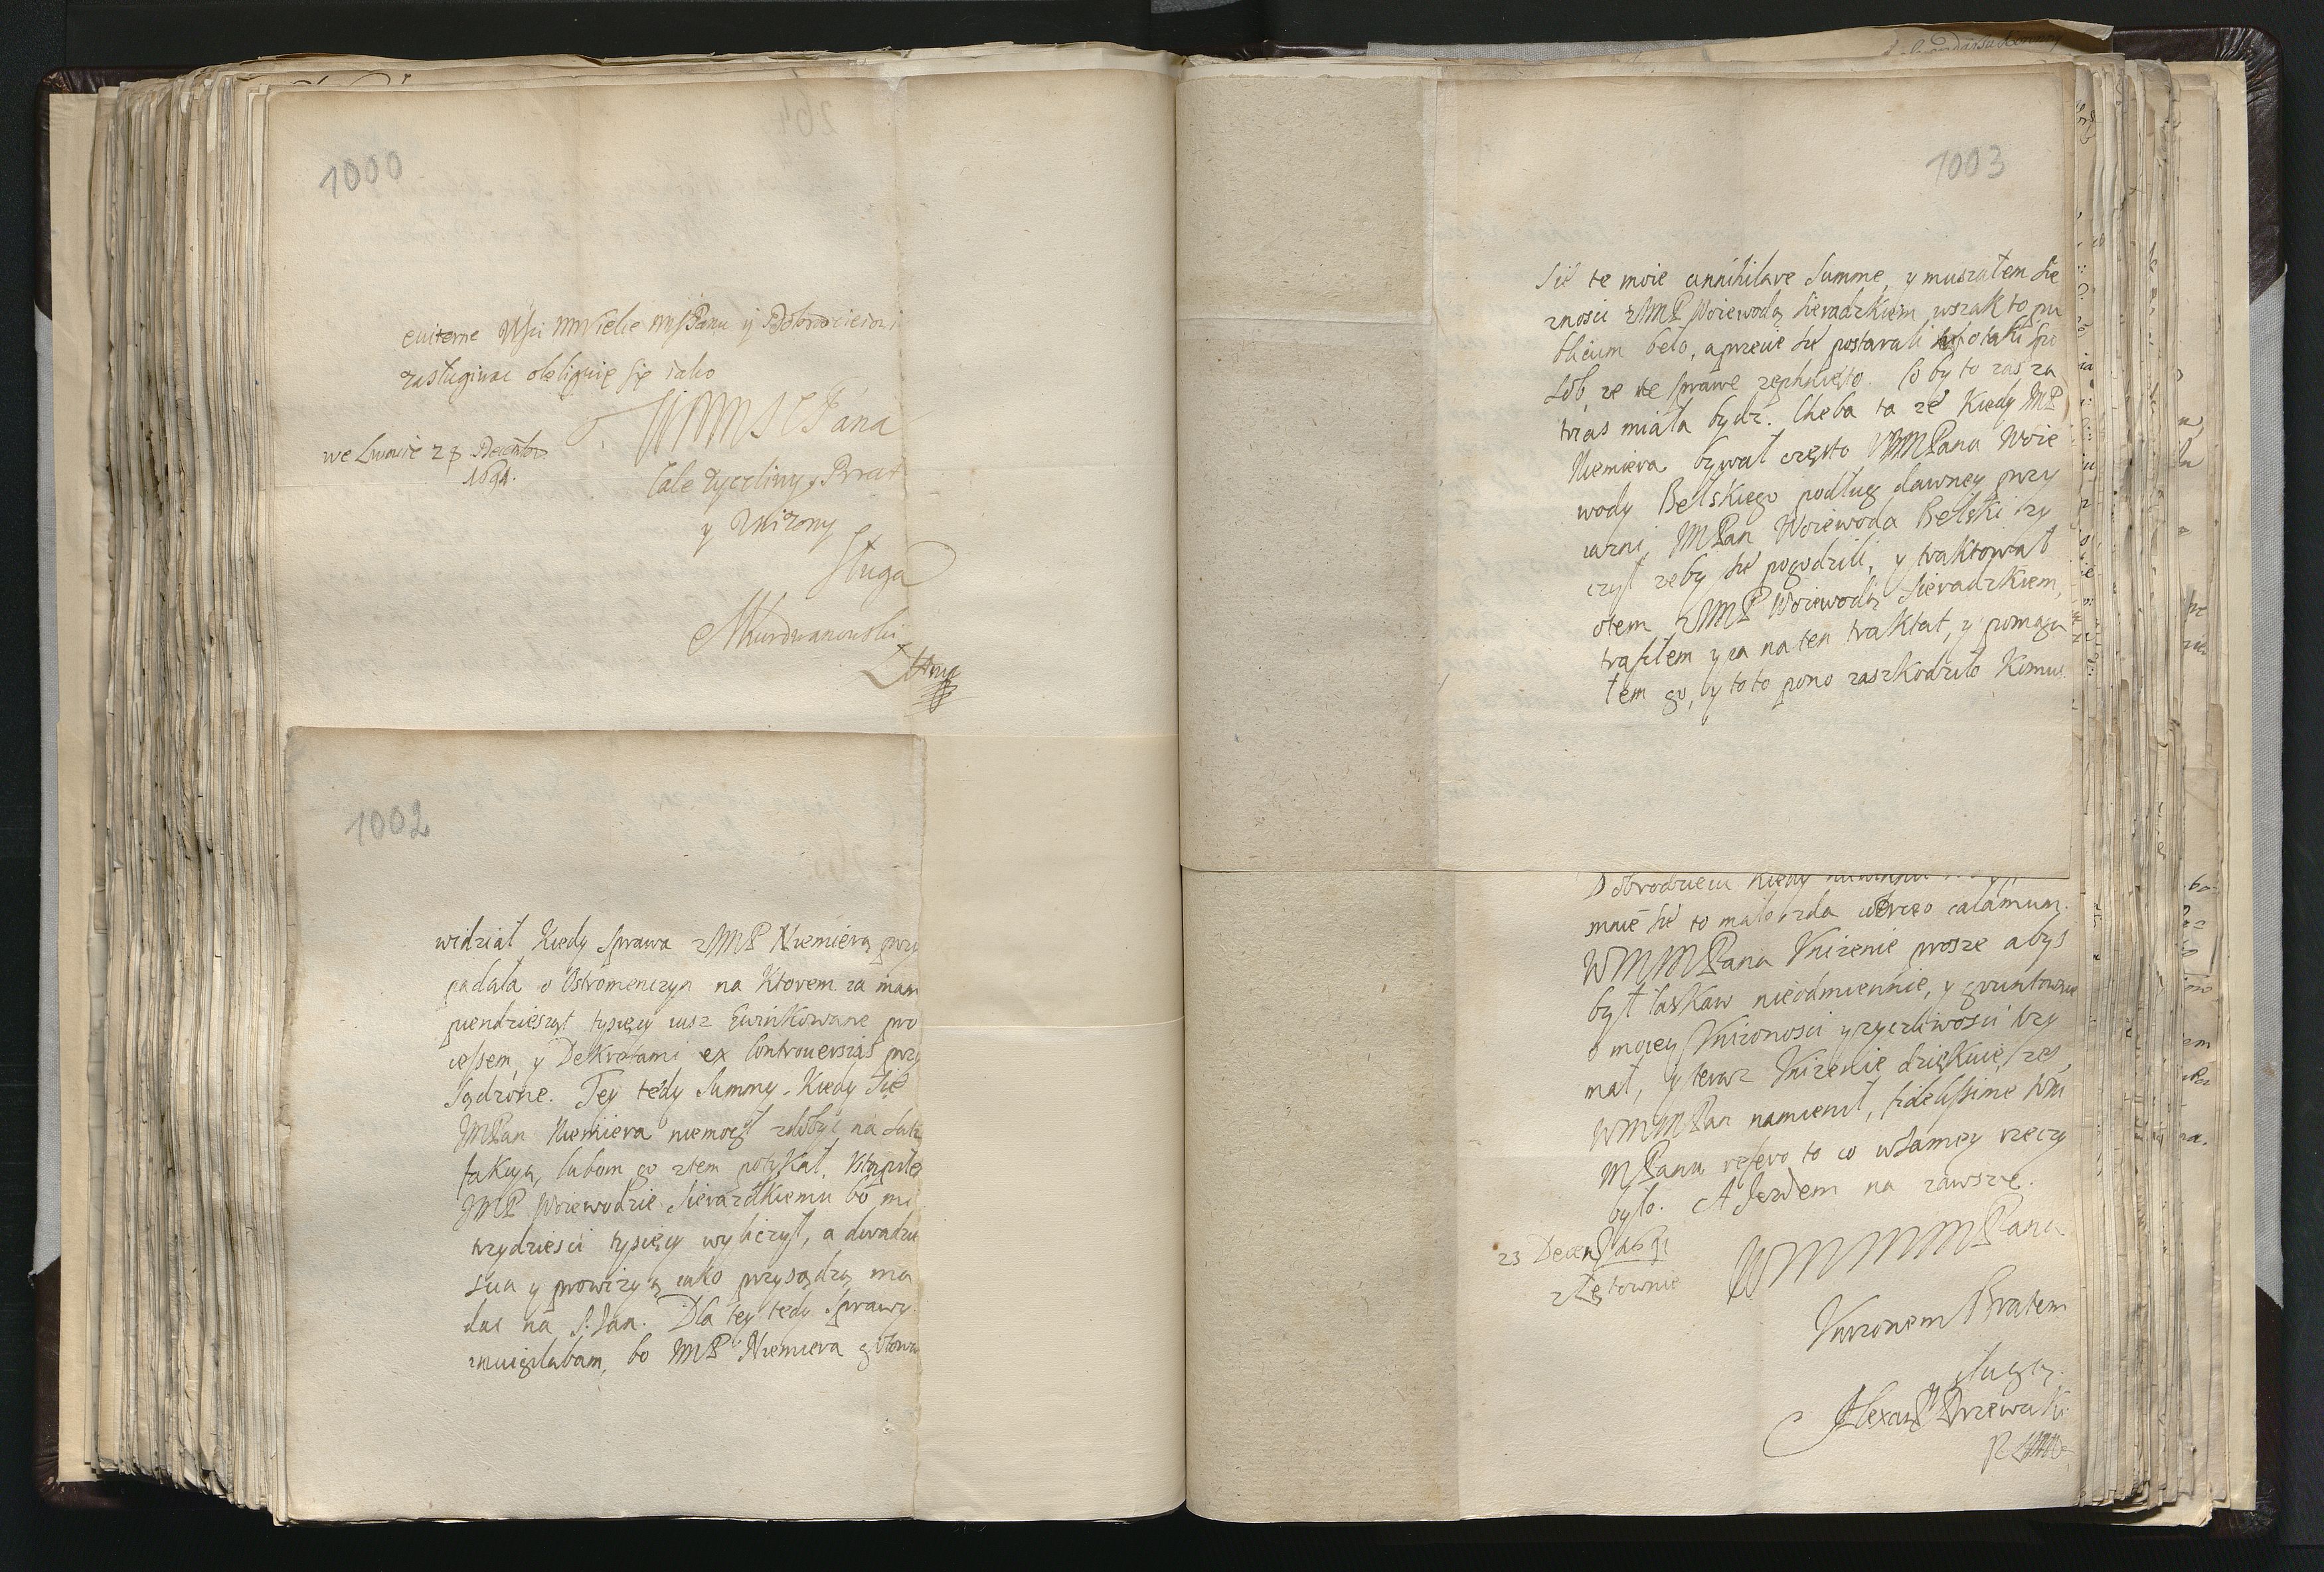 1000
eviterne
zasługiwac obliguię się iako
Pana
we Lwowie 28 Decembr
1691.
Cale zyczliwy Brat
y Unizony
Sługa
MKurdwanowski
1002
widział Kiedy sprawa z JMP Niemierą przy
padała o Ostromenczyn na Ktorem ia mam
piendzieszyt tysięcy iusz Ewinkowane pro
cessem, y Dekretami ex Controuersiis przy
sądzone. Tey tedy Summy Kiedy się
JMPan Niemiera niemogł zdobyc na satis
fakcyą, lubom go ztem potykał,
JMP Woiewodzie Sieradzkiemu bo mi
trzydziesci tysięcy wyliczył, a dwadzie
scia y prowizyą iako przysądzą ma
dac na S. Jan. Dla tey tedy sprawy
inuigilabam, bo JMP Niemiera gotowa
1003
sie te moie annihilare Summe, y muszałem sie
znosic z JMP Woiewodą Sieradzkiem, wszak to pu
blicum beło, a przecie sie postarali o taki spo
sob ze te sprawe zephnięto. Co by to zas za
trias miała bydz. Cheba ta ze Kiedy JMP
Niemiera bywał często U JMPana Woie
wody Bełskiego podług dawney przy
iazni, JMPan Woiewoda Bełski zy
czył zeby sie pogodzili, y traktował
otem z JMP Woiewodą Sieradzkiem,
trafiłem y ia na ten traktat, y pomaga
łem go, y to to pono zaszkodziło Komus
Dobrodzieiu Kiedy
mnie sie to mało zda calamum.
WMMMPana Unizenie prosze abys
był łaskaw nieodmiennie, y gruntownie
o moiey Unizonosci y zyczliwosci trzy
mał, y teraz Unizenie dziękuię, zes
WMMMPan namienił, fidelissime WM
MPanu refero to co wsamey rzeczy
było. A Jestem na zawsze.
23 Decem 1691
WMMMMPana
Unizonem Bratem
y sługą.
Alexan Przewuski